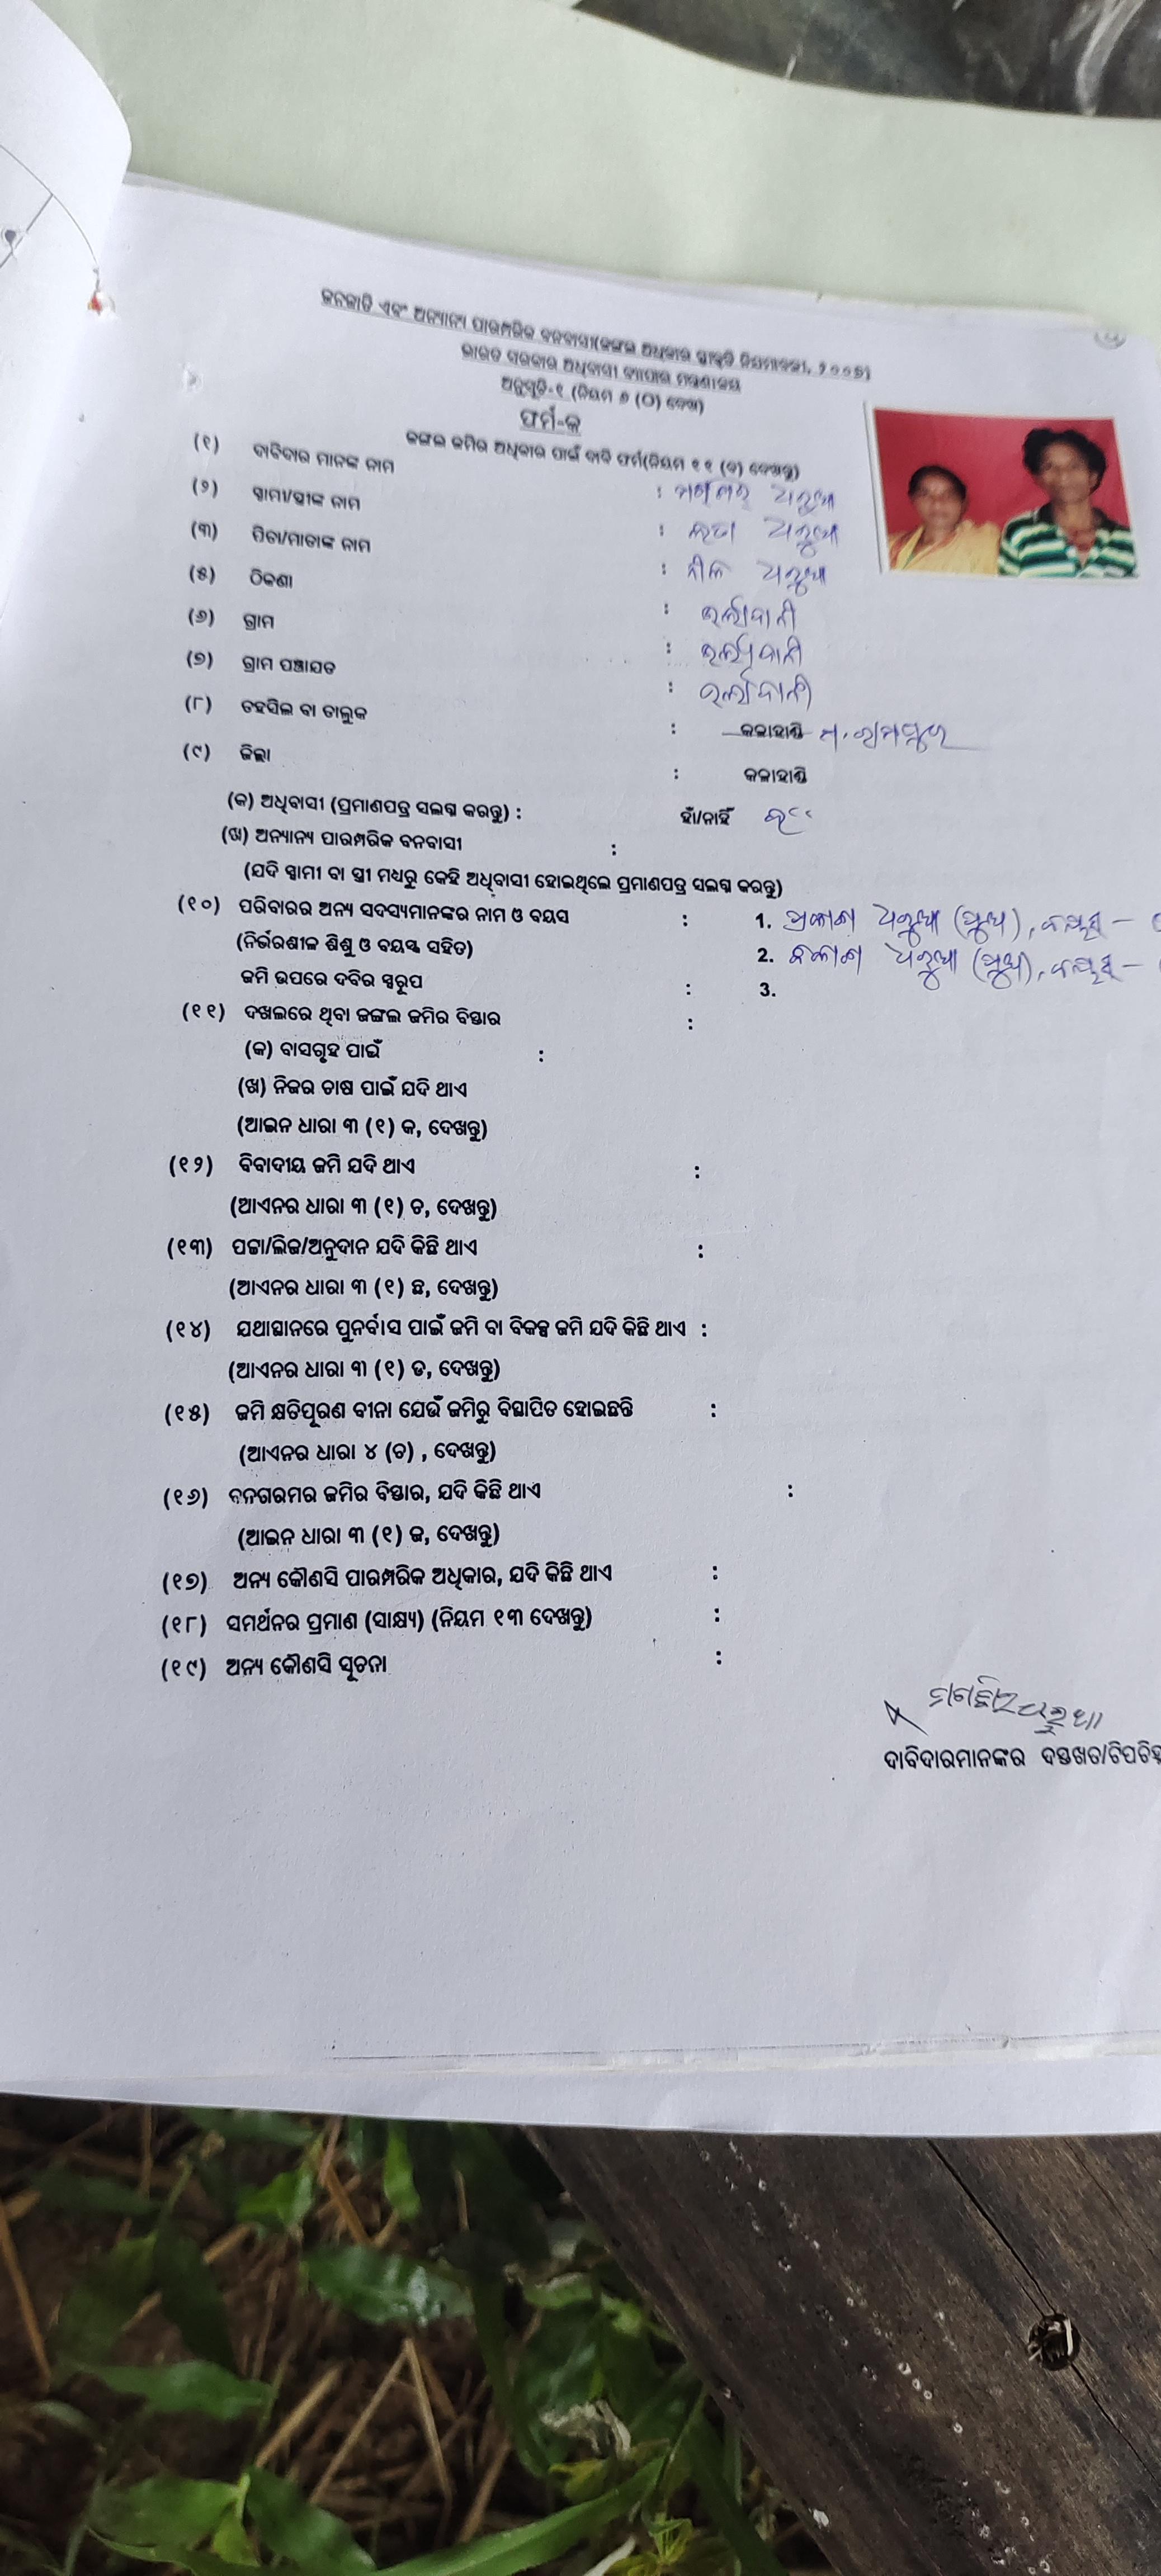 ଜନଜାତି ଏବଂ ଅନ୍ୟାନ୍ୟ ପାରମ୍ପରିକ ବନବାସୀ(ଜଙ୍ଗଲ ଅଧିକାର ସ୍ୱୀକୃତି ନିୟମାବଳୀ,
ଭାରତ ସରକାର ଅଧିବାସୀ ବ୍ୟାପାର ମନ୍ତ୍ରଣାଳୟ
ଅନୁସୂଚି-୧ (ନିୟମ ୬ (ଠ) ଦେଖ)
ଫର୍ମ-କ
ଜଙ୍ଗଲ ଜମିର ଅଧିକାର ପାଇଁ ଦାବି ଫର୍ମ(ନିୟମ ୧୧ (୧) ଦେଖନ୍ତୁ)
(୧) ଦାବିଦାର ମାନଙ୍କ ନାମ : ଧରୁଆ
(୨) ସ୍ୱାମୀ/ସ୍ତ୍ରୀଙ୍କ ନାମ : ଲତା ଧରୁଆ
(୩) ପିତା/ମାତାଙ୍କ ନାମ : ନୀଳ ଧରୁଆ
(୫) ଠିକଣା :
(୬) ଗ୍ରାମ :
(୭) ଗ୍ରାମ ପଞ୍ଚାଯତ :
(୮) ତହସିଲ ବା ତାଲୁକ : କଳାହାଣ୍ଡି ମ.ରାମପୁର
(୯) ଜିଲ୍ଲା : କଳାହାଣ୍ଡି
(କ) ଅଧିବାସୀ (ପ୍ରମାଣପତ୍ର ସଲଗ୍ନ କରନ୍ତୁ) : ହାଁ/ନାହିଁ
(ଖ) ଅନ୍ୟାନ୍ୟ ପାରମ୍ପରିକ ବନବାସୀ :
(ଯଦି ସ୍ୱାମୀ ବା ସ୍ତ୍ରୀ ମଧ୍ୟରୁ କେହି ଅଧିବାସୀ ହୋଇଥିଲେ ପ୍ରମାଣପତ୍ର ସଲଗ୍ନ କରନ୍ତୁ)
(୧୦) ପରିବାରର ଅନ୍ୟ ସଦସ୍ୟମାନଙ୍କର ନାମ ଓ ବୟସ : 1. ପ୍ରକାଶ ଧରୁଆ (ପୁଅ), ବୟସ –
(ନିର୍ଭରଶୀଳ ଶିଶୁ ଓ ବୟସ୍କ ସହିତ) 2. ବିକାଶ ଧରୁଆ (ପୁଅ), ବୟସ –
ଜମି ଉପରେ ଦବିର ସ୍ୱରୂପ : 3.
(୧୧) ଦଖଲରେ ଥିବା ଜଙ୍ଗଲ ଜମିର ବିସ୍ତାର :
(କ) ବାସଗୃହ ପାଇଁ :
(ଖ) ନିଜର ଚାଷ ପାଇଁ ଯଦି ଥାଏ
(ଆଇନ ଧାରା ୩ (୧) କ, ଦେଖନ୍ତୁ)
(୧୨) ବିବାଦୀୟ ଜମି ଯଦି ଥାଏ :
(ଆଏନର ଧାରା ୩ (୧) ଚ, ଦେଖନ୍ତୁ)
(୧୩) ପଟ୍ଟା/ଲିଜ/ଅନୁଦାନ ଯଦି କିଛି ଥାଏ :
(ଆଏନର ଧାରା ୩ (୧) ଛ, ଦେଖନ୍ତୁ)
(୧୪) ଯଥାସ୍ଥାନରେ ପୁନର୍ବାସ ପାଇଁ ଜମି ବା ବିକଳ୍ପ ଜମି ଯଦି କିଛି ଥାଏ :
(ଆଏନର ଧାରା ୩ (୧) ଡ, ଦେଖନ୍ତୁ)
(୧୫) ଜମି କ୍ଷତିପୂରଣ ବୀନା ଯେଉଁ ଜମିରୁ ବିସ୍ଥାପିତ ହୋଇଛନ୍ତି :
(ଆଏନର ଧାରା ୪ (ଚ) , ଦେଖନ୍ତୁ)
(୧୬) ବନଗରମର ଜମିର ବିସ୍ତାର, ଯଦି କିଛି ଥାଏ :
(ଆଇନ ଧାରା ୩ (୧) ଜ, ଦେଖନ୍ତୁ)
(୧୭) ଅନ୍ୟ କୌଣସି ପାରମ୍ପରିକ ଅଧିକାର, ଯଦି କିଛି ଥାଏ :
(୧୮) ସମର୍ଥନର ପ୍ରମାଣ (ସାକ୍ଷ୍ୟ) (ନିୟମ ୧୩ ଦେଖନ୍ତୁ) :
(୧୯) ଅନ୍ୟ କୌଣସି ସୂଚନା :
ଧରୁଆ
ଦାବିଦାରମାନଙ୍କର ଦସ୍ତଖତ/ଟିପଚିହ୍ନ